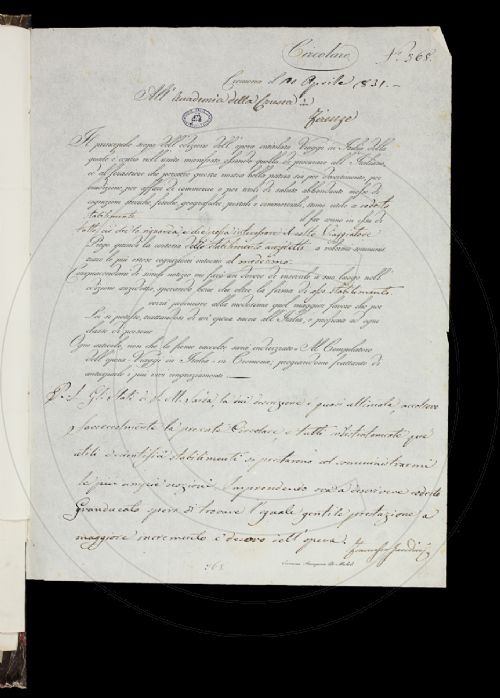 Circolare N.º 368.
Cremona il 12 Aprile 1831.-
All' Accademia della Crusca in
Firenze
Il principale scopo dell' edizione dell' opera intitolata Viaggi in Italia della
quale è copia nell' unito manifesto essendo quello di procurare all' Italiano,
ed al forastiere che percorre questa nostra bella patria sia per divertimento, per
istruzione per affari di commercio e per titoli di salute abbondanti mezzi di
cognizioni storiche fisiche geografiche postali e commerciali, stimo utile a codesto
Stabilimento il far cenno in essa di
tutto ciò che lo riguarda, e che possa interessare il colto Viaggiatore
Prego quindi la cortesia dello Stabilimento anzidetto a volermi sommini-
strare le più estese cognizioni intorno al medesimo.
Compiacendomi di simili notizie mi farò un dovere di inserirle a suo luogo nell'
edizione anzidetta, sperando bene che oltre la fama di esso Stabilimento
vorrà partecipare alla medesima quel maggior favore che per
Lei si potesse, trattandosi di un' opera sacra all' Italia, e proficua ad ogni
classe di persone
Ogni articolo, non che le firme raccolte sarà indirizzato = Al Compilatore
dell' opera Viaggi in Italia = in Cremona; pregiandomi frattanto di
anticiparle i più vivi ringraziamenti
P. S. Gli Stati di S. M. Sarda la cui descrizione è quasi ultimata, accolsero
favorevolmente la presente Circolare, e tutti indistintamente que'
utili e scientifici stabilimenti si prestarono ad somministrarmi
le più ampie nozioni. Imprendendo ora a descrivere codesto
Granducato spero di trovare l' eguale gentile prestazione a
maggiore incremento e decoro dell' opera.
Francesco Gandini
368
Cremona Stamperia De-Micheli